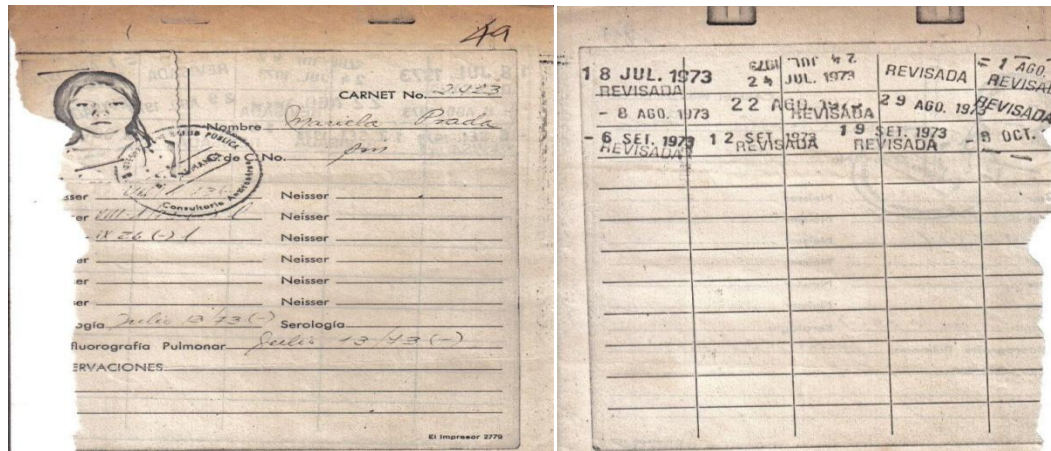 49
CARNET No. 2.423
Nombre Mariela Prada
C. de C. No.
Consultorio
Neisser
Neisser
IX 26 (-) Neisser
er Neisser
er Neisser
er Neisser
ogía Julio 13/73 (-) Serología
fluorografía Pulmonar Julio 13/73 (-)
ERVACIONES
El Impresor 2779
18 JUL. 1973 24 JUL. 1973 REVISADA = 1 AGO.
REVISADA REVISADA
- 8 AGO. 1973 22 AGO. 1973 REVISADA 29 AGO. 1973 REVISADA
- 6 SET. 1973 12 SET. 1973 19 SET. 1973 - 8 OCT.
REVISADA REVISADA REVISADA